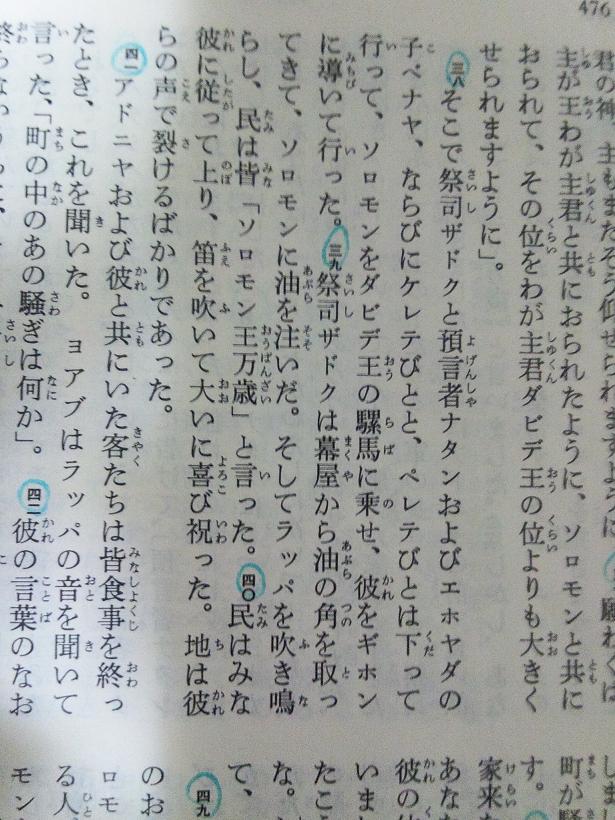 476
君の神、主もまたそう仰せられますように。
主が王わが主君と共におられたように、ソロモンと共に
おられて、その位をわが主君ダビデ王の位よりも大きく
せられますように」。
三八そこで祭司ザドクと預言者ナタンおよびエホヤダの
子ベナヤ、ならびにケレテびとと、ペレテびとは下って
行って、ソロモンをダビデ王の騾馬に乗せ、彼をギホン
に導いて行った。三九祭司ザドクは幕屋から油の角を取っ
てきて、ソロモンに油を注いだ。そしてラッパを吹き鳴
らし、民は皆「ソロモン王万歳」と言った。四〇民はみな
彼に従って上り、笛を吹いて大いに喜び祝った。地は彼
らの声で裂けるばかりであった。
四一アドニヤおよび彼と共にいた客たちは皆食事を終っ
たとき、これを聞いた。ヨアブはラッパの音を聞いて
言った、「町の中のあの騒ぎは何か」。四二彼の言葉のなお
終らない
しま
町が騒
す。
家来
あなた
彼の
いまし
たこ
な。
て、
四九
のお
ロモ
る人
モン